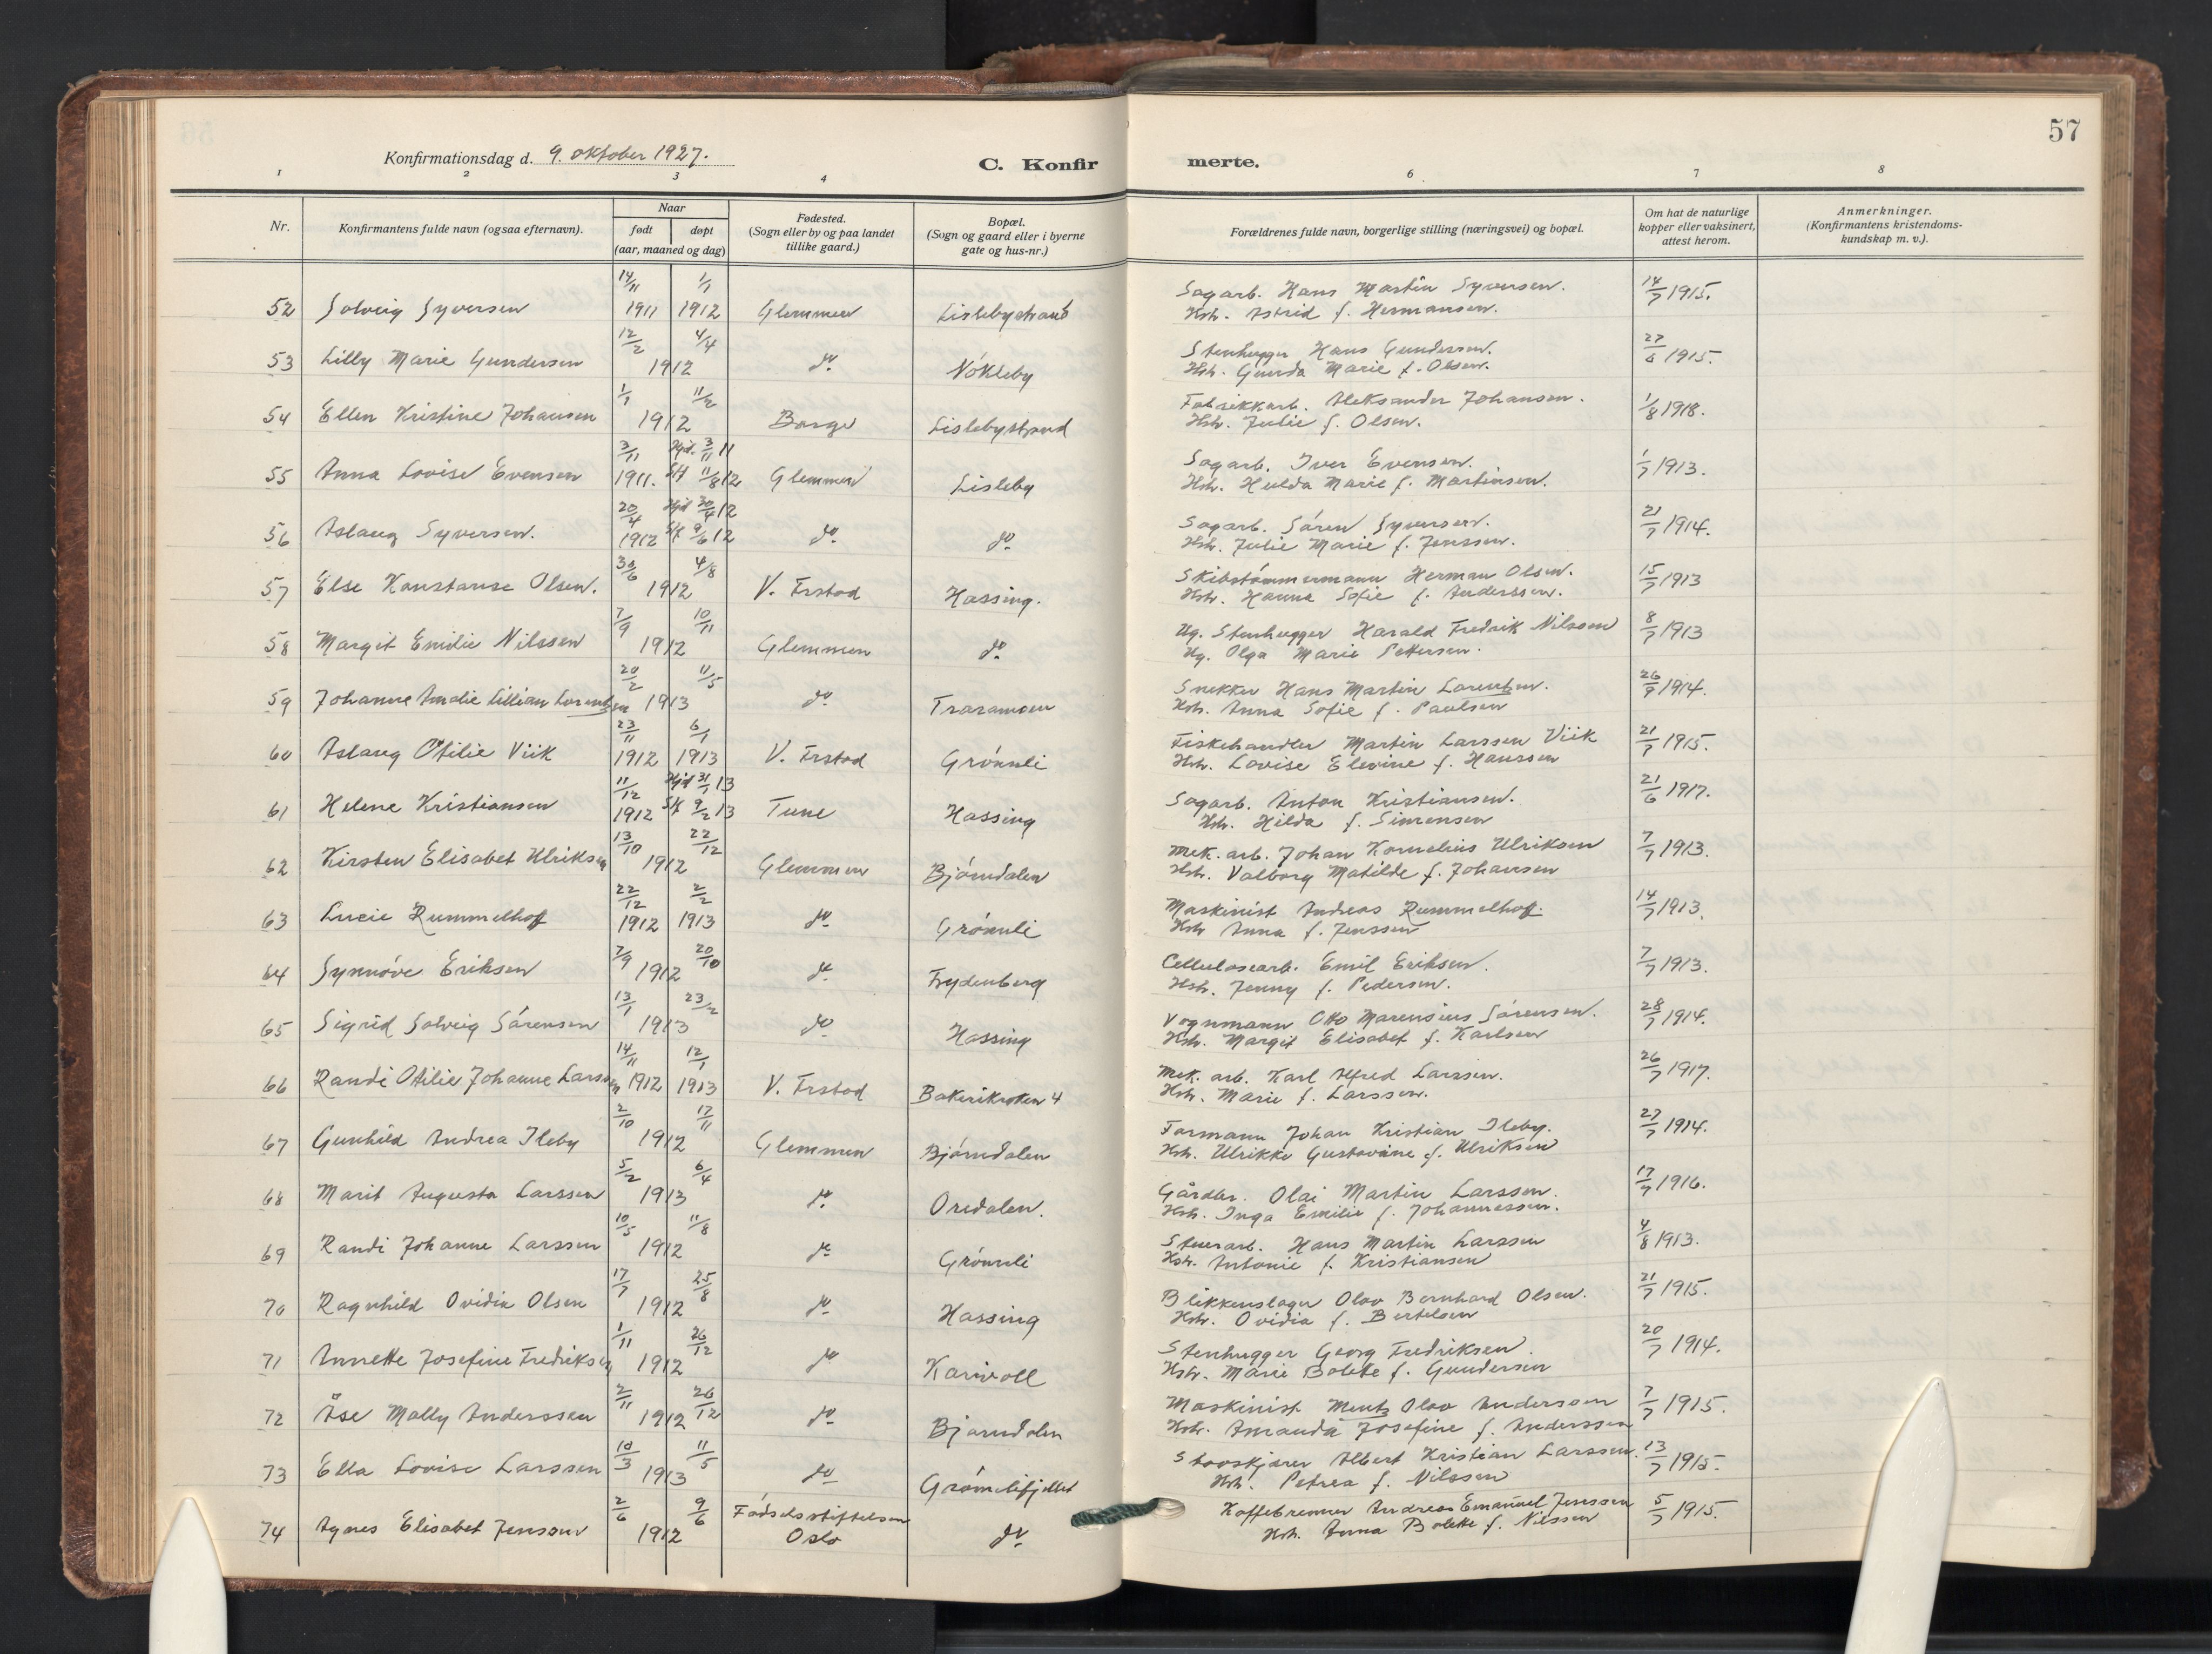 57
Konfirmationsdag d. 9. oktober 1927.
C. Konfir merte.
1 2 3 4 6 7 8
Nr.
Konfirmantens fulde navn (ogsaa efternavn).
Naar
født døpt
(aar, maaned og dag)
Fødested.
(Sogn eller by og paa landet
tillike gaard.)
Bopæl.
(Sogn og gaard eller i byerne
gate og hus-nr.)
Forældrenes fulde navn, borgerlige stilling (næringsvei) og bopæl.
Om hat de naturlige
kopper eller vaksinert,
attest herom.
Anmerkninger.
(Konfirmantens kristendoms-
kundskap m. v.).
14/11 1/1 Sagarb. Hans Martin Syversen. 14/7 1915.
52 Solveig Syversen 1911 1912 Glemmen Lislebystrand Hst. Astrid f. Hermansen.
12/2 4/4 Stenhugger Hans Gundersen. 27/6 1915.
53 Lilly Marie Gundersen 1912 do. Nökleby Hst. Gunda Marie f. Olsen.
1/1 11/2 Fabrikkarb. Aleksander Johansen. 1/8 1918.
54 Ellen Kristine Johansen 1912 Borge Lislebystrand Hst. Julie f. Olsen.
3/11 Hjd. 3/11 11 Sagarb. Iver Evensen. 1/7 1913.
55 Anna Lovise Evensen 1911. St 11/8 12 Glemmen Lisleby Hst. Hulda Marie f. Martinsen.
20/4 Hjd 30/4 12 Sagarb. Sören Syversen. 21/7 1914.
56 Aslaug Syversen. 1912 St 9/6 12 do. do. Hst. Julie Marie f. Jenssen.
30/6 4/8 Skibstömmermann Herman Olsen. 15/7 1913
57 Else Konstanse Olsen. 1912 V. Frstad Hassing. Hst. Hanna Sofie f. Anderssen.
7/9 10/11 Ug. Stenhugger Harald Fredrik Nilssen 8/7 1913
58 Margit Emilie Nilssen 1912 Glemmen do. Ug. Olga Marie Pettersen.
20/2 11/5 Snekker Hans Martin Lorentzen. 26/9 1914.
59 Johanne Amalie Lillian Lorentzen 1913 do. Traramoen Hst. Anna Sofie f. Paulsen
23/11 6/1 Fiskehandler Martin Larssen Viik 21/7 1915.
60 Aslaug Otilie Viik 1912 1913 V. Frstad Grönnli Hst. Lovise Elevine f. Hanssen
11/12 Hjd 31/1 13 Sagarb. Anton Kristiansen. 21/6 1917.
61 Helene Kristiansen 1912 St 9/2 13 Tune Hassing Hst. Hilda f. Simensen
13/10 22/12 Mek. arb. Johan Kornelius Ulriksen 7/7 1913.
62 Kirsten Elisabet Ulriksen 1912 Glemmen Björndalen Hst. Valborg Matilde f. Johansen
22/12 2/2 Maskinist Andreas Rummelhoff. 14/7 1913.
63 Lucie Rummelhoff 1912 1913 do. Grönnli Hst Anna f. Jenssen
7/9 20/10 Cellulosearb. Emil Eriksen. 7/7 1913.
64 Synnöve Eriksen 1912 do. Frydenberg Hst. Jenny f. Pedersen.
13/1 23/2 Vognmann Otto Marensius Sörensen. 28/7 1914.
65 Sigrid Solveig Sörensen 1913 do Hassing Hst. Margit Elisabet f. Karlsen
14/11 12/1 Mek. arb. Karl Alfred Larssen. 26/7 1917.
66 Randi Otilie Johanne Larssen 1912 1913 V. Frstad Bakerikroken 4 Hst. Marie f. Larssen.
2/10 17/11 Formann Johan Kristian Ileby. 27/7 1914.
67 Gunhild Andrea Ileby 1912 Glemmen Björndalen Hst. Ulrikke Gustovine f. Ulriksen
5/2 6/4 Gårdbr. Olai Martin Larssen. 17/7 1916.
68 Marit Augusta Larssen 1913 do. Oredalen. Hst. Inga Emilie f. Johannessen.
10/5 11/8 Stuerarb. Hans Martin Larssen 4/8 1913.
69 Randi Johanne Larssen 1912 do Grönnli Hst. Antonie f. Kristiansen
17/7 25/8 Blikkenslager Olav Bernhard Olsen. 21/7 1915.
70 Ragnhild Ovidia Olsen 1912 do Hassing Hst. Ovidia f. Bertelsen
1/11 26/12 Stenhugger Georg Fredriksen. 20/7 1914.
71 Annette Josefine Fredriksen 1912 do Karivoll Hst. Marie Bolette f. Gundersen
2/11 26/12 Maskinist Mentz Olav Anderssen 7/7 1915.
72 Åse Molly Anderssen 1912 do Bjørndalen Hst. Amanda Josefine f. Anderssen
10/3 11/5 Stavskjærer Albert Kristian Larssen. 13/7 1915.
73 Ella Lovise Larssen 1913 do Grönnlifjellet Hst. Petrea f. Nilssen
2/6 9/6 Födselsstiftelsen Kaffebrenner Andreas Emanuel Jenssen 5/7 1915.
74 Agnes Elisabet Jenssen 1912 Oslo do. Hst. Anna Bolette f. Nilssen